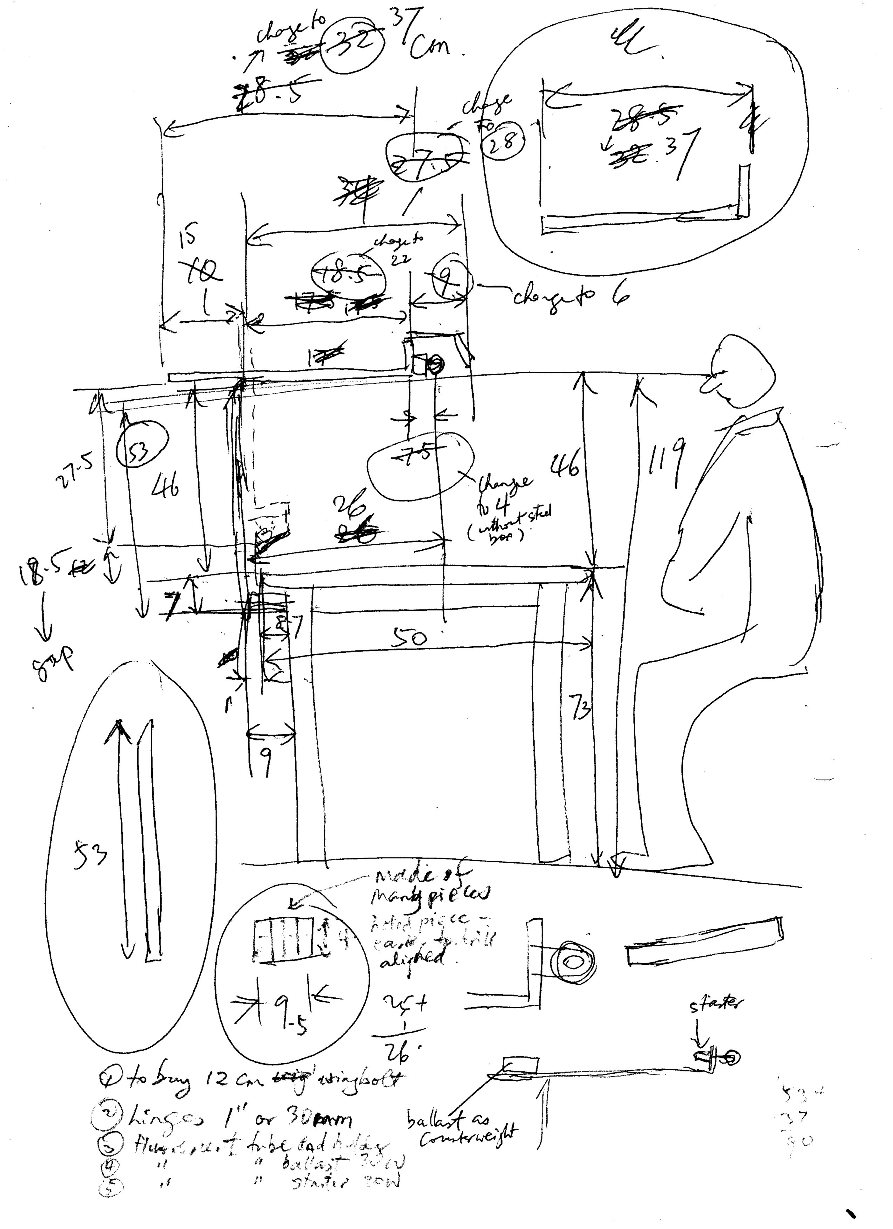 change to
32
37
cm.
28.5
27.5
change
to
28
28.5
32.37
15
10
18.5
change to
22
9
change to 6
17
27.5
53
46
7.5
change
to 4
(without steel
box)
26
46
119
18.5
gap
7
7
50
73
9
53
made of
many pieces
aligned.
9.5
25+
1
26.
starter
① to buy 12 cm wingbolt
② hinges 1" or 30mm
③ fluorescent tube end holder
④ " " ballast 20W
⑤ " " starter 20W
ballast as
counterweight
37